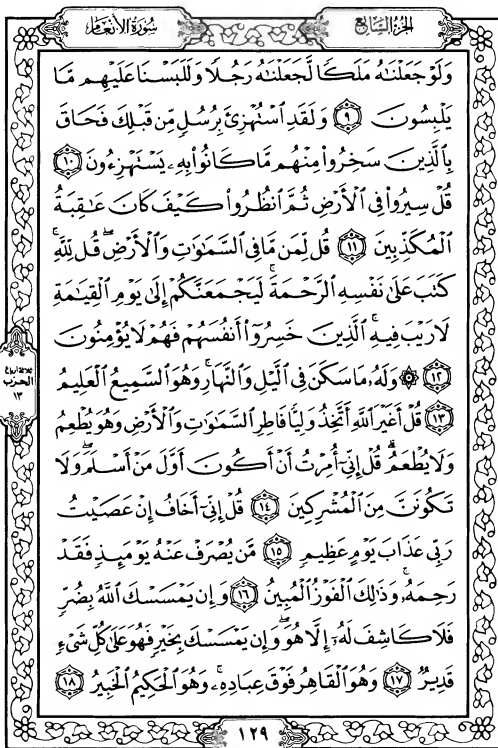 سُورَةُ الأَنْعَام
الجُزْءُ السَّابِع
وَلَوْ جَعَلْنَٰهُ مَلَكًا لَّجَعَلْنَٰهُ رَجُلًا وَلَلَبَسْنَا عَلَيْهِم مَّا
يَلْبِسُونَ ٩ وَلَقَدِ ٱسْتُهْزِئَ بِرُسُلٍ مِّن قَبْلِكَ فَحَاقَ
بِٱلَّذِينَ سَخِرُوا۟ مِنْهُم مَّا كَانُوا۟ بِهِۦ يَسْتَهْزِءُونَ ١٠
قُلْ سِيرُوا۟ فِى ٱلْأَرْضِ ثُمَّ ٱنظُرُوا۟ كَيْفَ كَانَ عَٰقِبَةُ
ٱلْمُكَذِّبِينَ ١١ قُل لِّمَن مَّا فِى ٱلسَّمَٰوَٰتِ وَٱلْأَرْضِ ۖ قُل لِّلَّهِ ۚ
كَتَبَ عَلَىٰ نَفْسِهِ ٱلرَّحْمَةَ ۚ لَيَجْمَعَنَّكُمْ إِلَىٰ يَوْمِ ٱلْقِيَٰمَةِ
لَا رَيْبَ فِيهِ ۚ ٱلَّذِينَ خَسِرُوٓا۟ أَنفُسَهُمْ فَهُمْ لَا يُؤْمِنُونَ
١٢ ۞ وَلَهُۥ مَا سَكَنَ فِى ٱلَّيْلِ وَٱلنَّهَارِ ۚ وَهُوَ ٱلسَّمِيعُ ٱلْعَلِيمُ
١٣ قُلْ أَغَيْرَ ٱللَّهِ أَتَّخِذُ وَلِيًّا فَاطِرِ ٱلسَّمَٰوَٰتِ وَٱلْأَرْضِ وَهُوَ يُطْعِمُ
وَلَا يُطْعَمُ ۗ قُلْ إِنِّىٓ أُمِرْتُ أَنْ أَكُونَ أَوَّلَ مَنْ أَسْلَمَ ۖ وَلَا
تَكُونَنَّ مِنَ ٱلْمُشْرِكِينَ ١٤ قُلْ إِنِّىٓ أَخَافُ إِنْ عَصَيْتُ
رَبِّى عَذَابَ يَوْمٍ عَظِيمٍ ١٥ مَّن يُصْرَفْ عَنْهُ يَوْمَئِذٍ فَقَدْ
رَحِمَهُۥ ۚ وَذَٰلِكَ ٱلْفَوْزُ ٱلْمُبِينُ ١٦ وَإِن يَمْسَسْكَ ٱللَّهُ بِضُرٍّ
فَلَا كَاشِفَ لَهُۥٓ إِلَّا هُوَ ۖ وَإِن يَمْسَسْكَ بِخَيْرٍ فَهُوَ عَلَىٰ كُلِّ شَىْءٍ
قَدِيرٌ ١٧ وَهُوَ ٱلْقَاهِرُ فَوْقَ عِبَادِهِۦ ۚ وَهُوَ ٱلْحَكِيمُ ٱلْخَبِيرُ ١٨
ثلاثة أرباع
الحزب
١٣
١٢٩